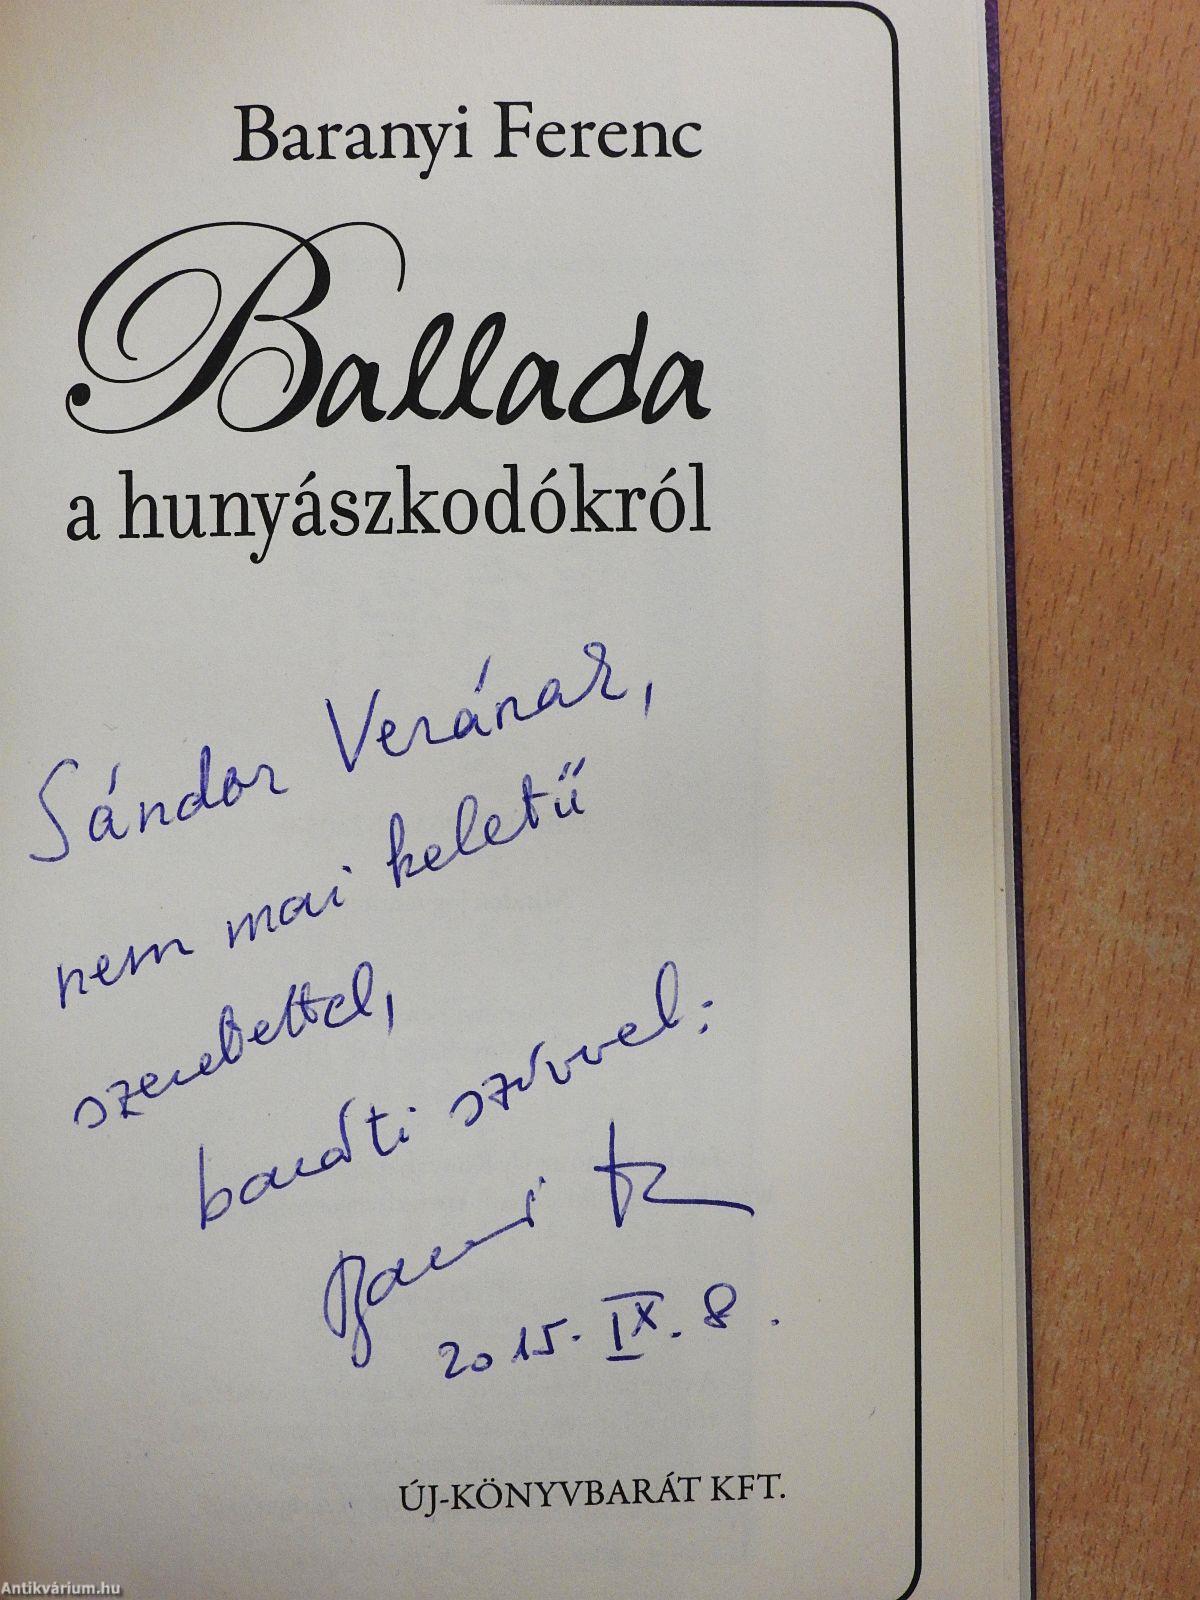 Baranyi Ferenc
Ballada
a hunyászkodókról
Sándor Verának,
nem mai keletű
szeretettel,
baráti szívvel:
Baranyi F
2015. IX. 8.
ÚJ-KÖNYVBARÁT KFT.
Antikvárium.hu